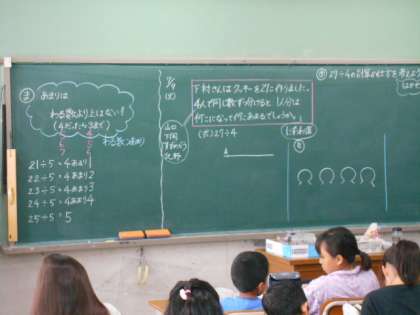 ま あまりは
わる数より上はない!
(4だったら3まで)
6 5
7 6
わる数
21÷5=4あまり1
22÷5=4あまり2
23÷5=4あまり3
24÷5=4あまり4
25÷5=5
7/4
下村さんはクッキーを27こ作りました。
4人で同じ数ずつ分けると1人分は
何こになって何こあまるでしょうか。
(式)27÷4
山口
27÷4の計算の仕方を考えよう